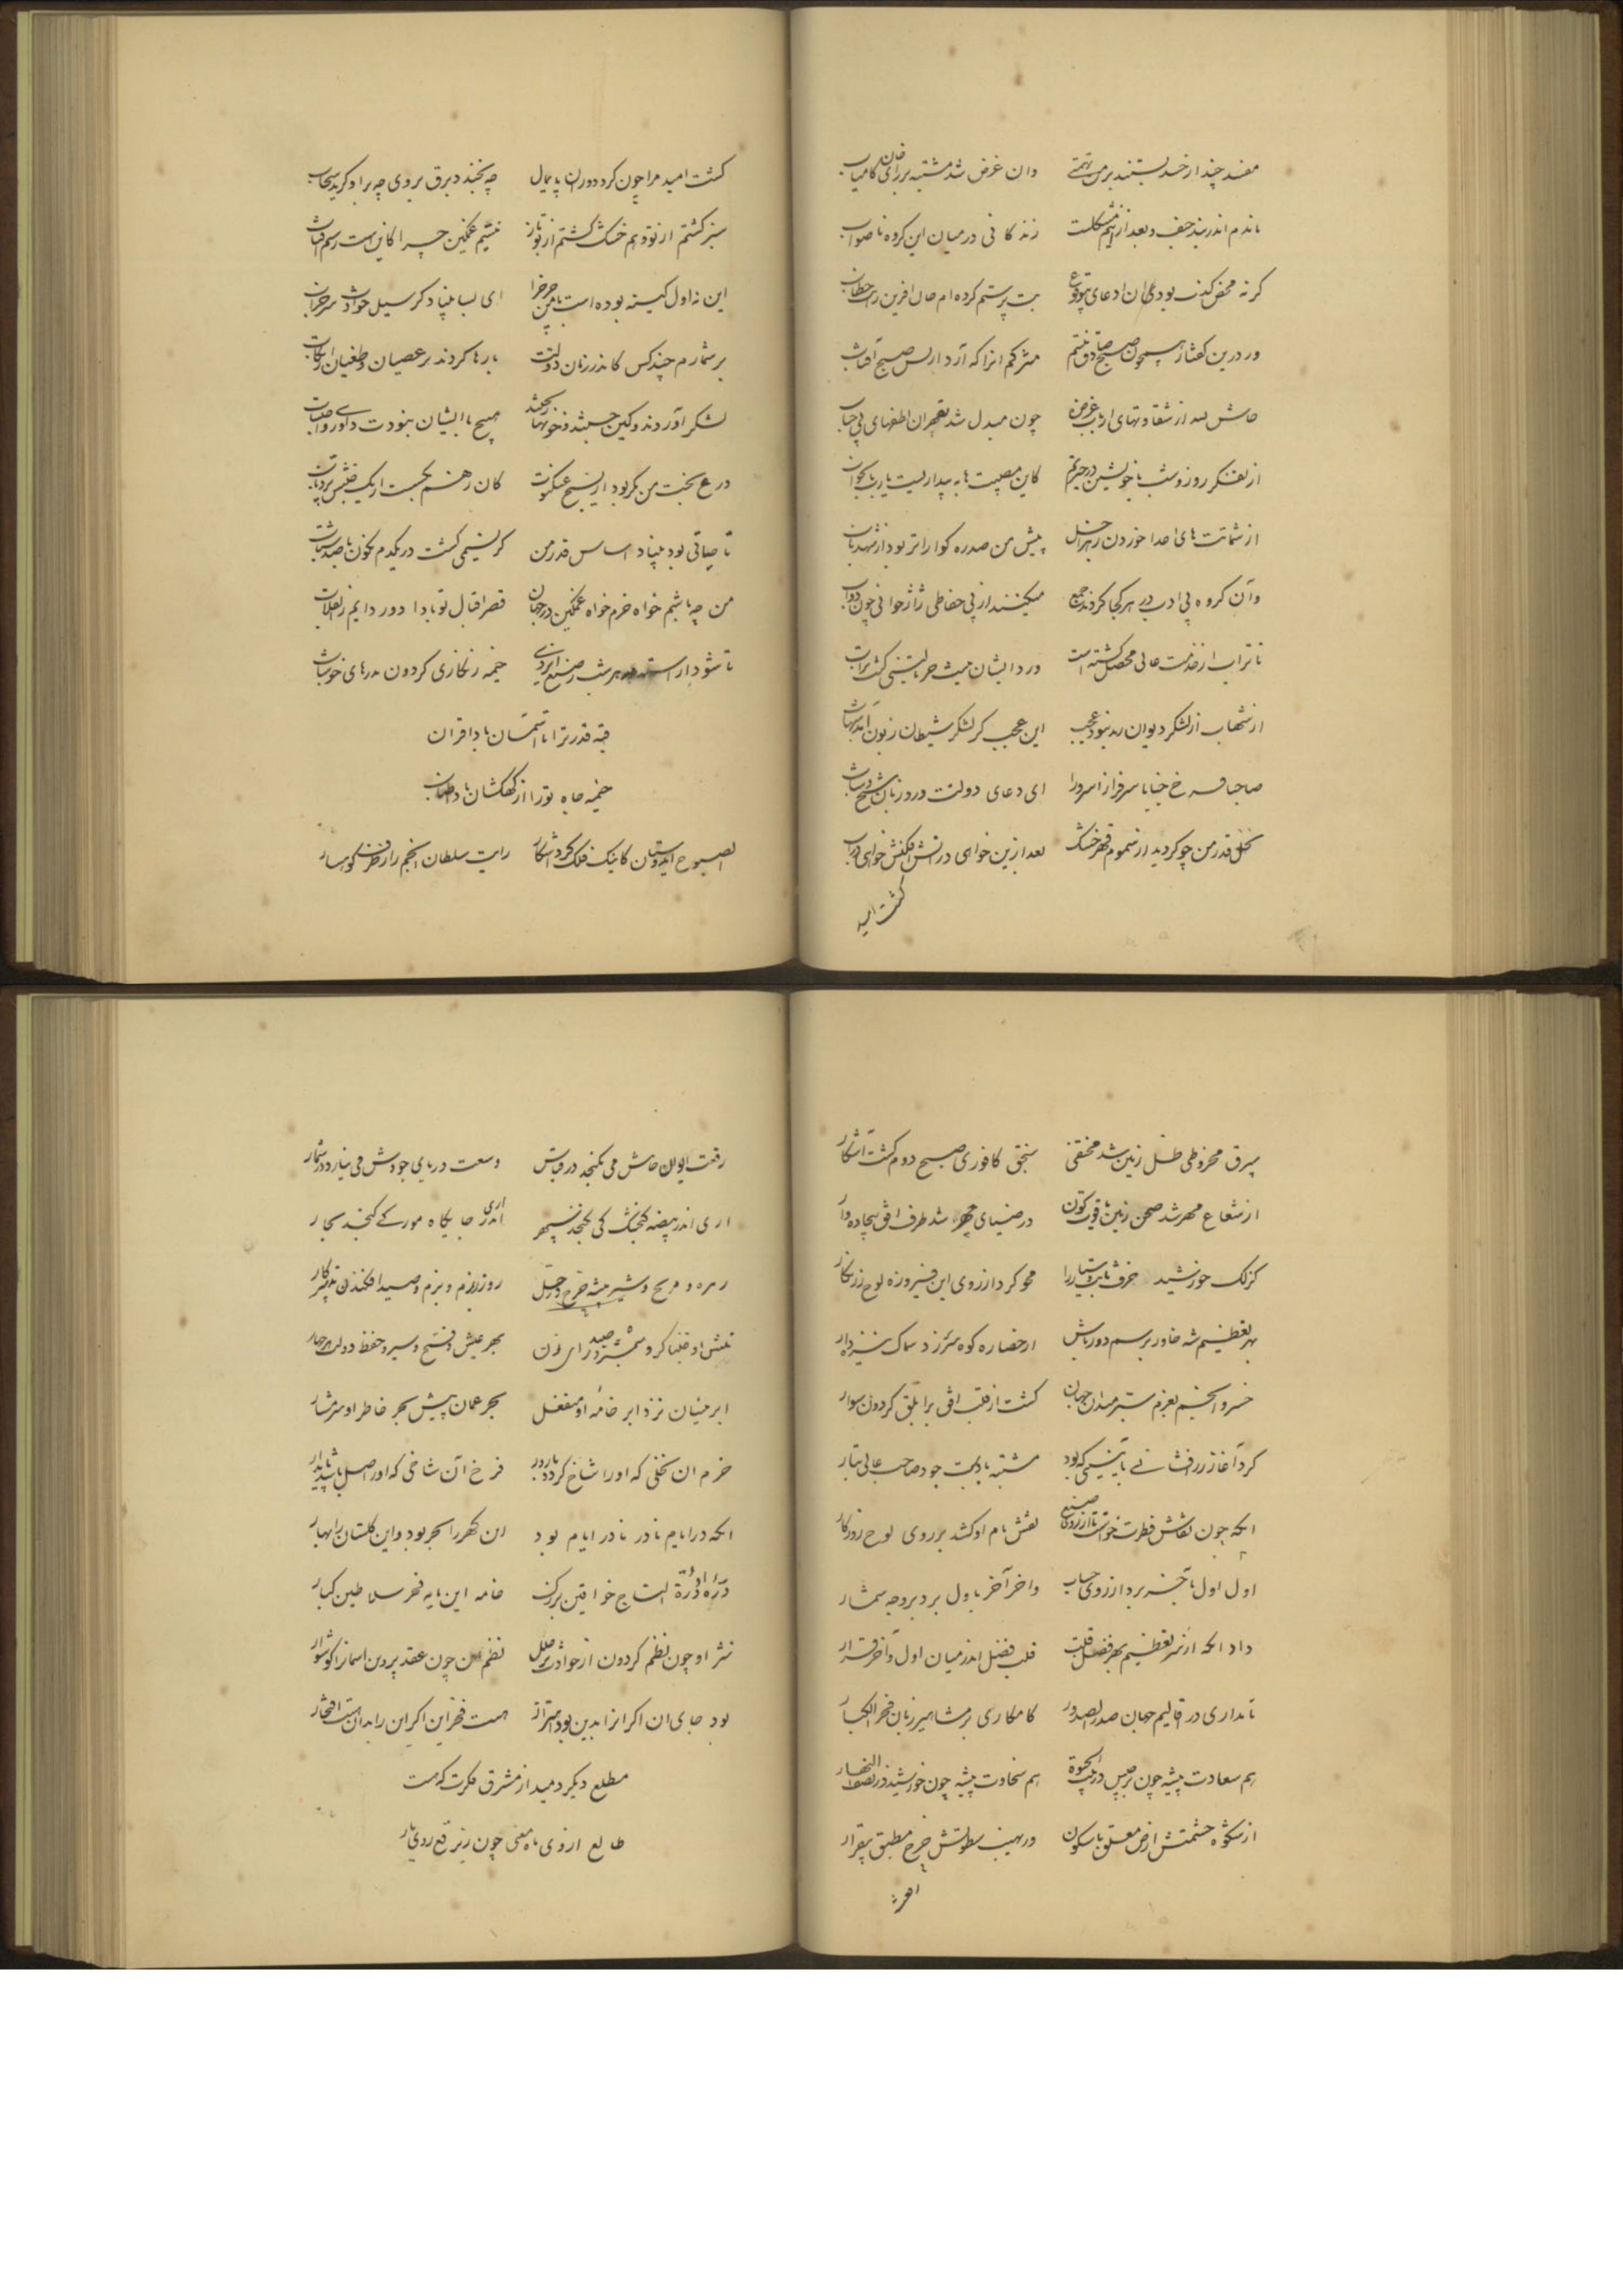 مفسد چند از حسد بستند بر من تهمتی وان غرض شد مشتبه بر رای خان کامیاب
ماندم اندر بند حیف و بعد ازینم مشکلست زندکانی در میان این کروه ناصواب
کر نه محض کذب بود ان ادعای بیوقوع بت پرستم کرده ام جان آفرین را خطاب
ور درین کفتار همچون صبح صادق نیستم مشرکم انرا که آرد از پس صبح آفتاب
حاش لله از شقاوتهای ارباب غرض چون مبدل شد بقهر ان لطفهای بی حساب
از تفکر روز و شب با خویشتن در حیرتم کاین مصیبت ها به بیداریست یارب یا بخواب
از شماتت های اعدا خوردن زهر اجل پیش من صدره کواراتر بود از شهد ناب
وآن کروه بی ادب در هر کجا کردند جمع میکنند از بی حفاظی ژاژخوائی چون دواب
تا تراب از خدمت عالی محصل کشته است ورد ایشان نیست جز یا لیتنی کنت تراب
از شهاب ار لشکر دیوان رمد نبود عجب این عجب کز لشکر شیطان زبون آمد شهاب
صاحبا فرخ جنابا سرفرازا سرورا ای دعای دولتت ورد زبان شیخ و شاب
نخل قدر من چو کردید از سموم قهر خشک بعد ازین خواهی در آتش افکنش خواهی در آب
کشت امید
کشت امید مرا چون کرد دوران پایمال چه بخندد برق بر وی چه برا و کرید سحاب
سبز کشتم از تو و هم خشک کشتم از تو باز نیستم غمکین چرا کاین است رسم آفتاب
این نه اول کینه بوده است با من چرخ را ای بسا بنیاد کز سیل حوادث شد خراب
بر شمارم چند کس کاندر زمان دولتت بارها کردند بر عصیان و طغیان ارتکاب
لشکر آوردند و کین جستند و خونها ریختند هیچ با ایشان نبودت داوری واحتساب
درع بخت من مکر بود از نسیج عنکبوت کان زهم بکسست از یک جنبش پر ذباب
تا حبابی بود بنیاد اساس قدر من کز نسیمی کشت در یکدم نکون با صد شتاب
من چه باشم خواه خرم خواه غمکین در جهان قصر اقبال تو بادا دور دایم ز انقلاب
تا شود اراسته هر شب ز صنع ایزدی خیمه زنکاری کردون بدرهای خوشاب
قبه قدر ترا با آسمان بادا قران
خیمه جاه تو را از کهکشان بادا طناب
الصبوح ای دوستان کاینک فلک کرد آشکار رایت سلطان انجم را ز طرف کوهسار
بیرق مخروطی ظل زمین شد مختفی سنجق کافوری صبح دوم کشت آشکار
از شعاع مهر شد صحن زمین یاقوت کون در ضیای مهر شد طرف افق بیجاده وار
کزلک خورشید حرف ثابت و سیار را محو کرد از روی این فیروزه لوح زرنکار
بهر تعظیم شه خاور برسم دورباش از حصاره کوه سر زد سماک نیزه دار
خسرو انجم بعزم سیر میدان جهان کشت از قلب افق بر ابلق کردون سوار
کرد آغاز زرافشانی بآئینی که بود مشتبه با دست جود صاحب عالی تبار
انکه چون نقاش فطرت خواست تا از روی صنع نقش نام او کشد بر روی لوح روزکار
اول اول تا بآخر برد از روی حساب واخر آخر باول برد بر وجه شمار
داد انکه از سر تعظیم بهر فضل قلب قلب فضل اندر میان اول و آخر قرار
نامداری در اقالیم جهان صدر الصدور کامکاری بر مشاهیر زمان فخر الکبار
هم سعادت پیشه چون برجیس در بیت الحیوة هم سخاوت پیشه چون خورشید در نصف النهار
از شکوه حشمتش ارض معلق با سکون ور نهیب سطوتش چرخ مطبق بیقرار
رفعت ایوان جاهش می نکنجد در قیاس وسعت دریای جودش می نیارد در شمار
اری اندر بیضه کنجشک کی کنجد سپهر اری اندر جایکاه مور کی کنجد بحار
زهره و مریخ و شیر بیشه چرخ و حمل روز رزم و بزم و صید افکندن تدبیر کار
بهر عیش و فتح و سیر و حفظ دولت هر چهار
ابر نیسان نزد ابر خامهٔ او منفعل بحر عمان پیش بحر خاطر او شرمسار
خرم ان نخلی که او را شاخ کردد بارور فرخ آن شاخی که او را اصل باشد پایدار
انکه در ایام نادر نادر ایام بود ان کهر را بحر بود و این کلستان را بهار
درهٔ او درة التاج خواقین بزرک خامه این مایه فخر سلاطین کبار
نثر او چون نظم کردون از حوادث بی خلل نظم من چون عقد پروین اسمان را کوشوار
بود جای ان اکر انرا بدین بود اهتزاز هست فخر این اکر این را بدان هست افتخار
مطلع دیکر دمید از مشرق فکرت که هست
طالع از وی ماه معنی چون ز برقع روی یار